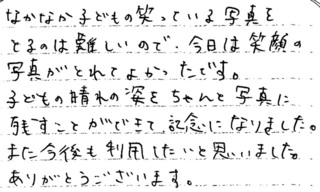 なかなか子どもの笑っている写真を
とるのは難しいので、今日は笑顔の
写真がとれてよかったです。
子どもの晴れの姿をちゃんと写真に
残すことができて、記念になりました。
また今後も利用したいと思いました。
ありがとうございます。